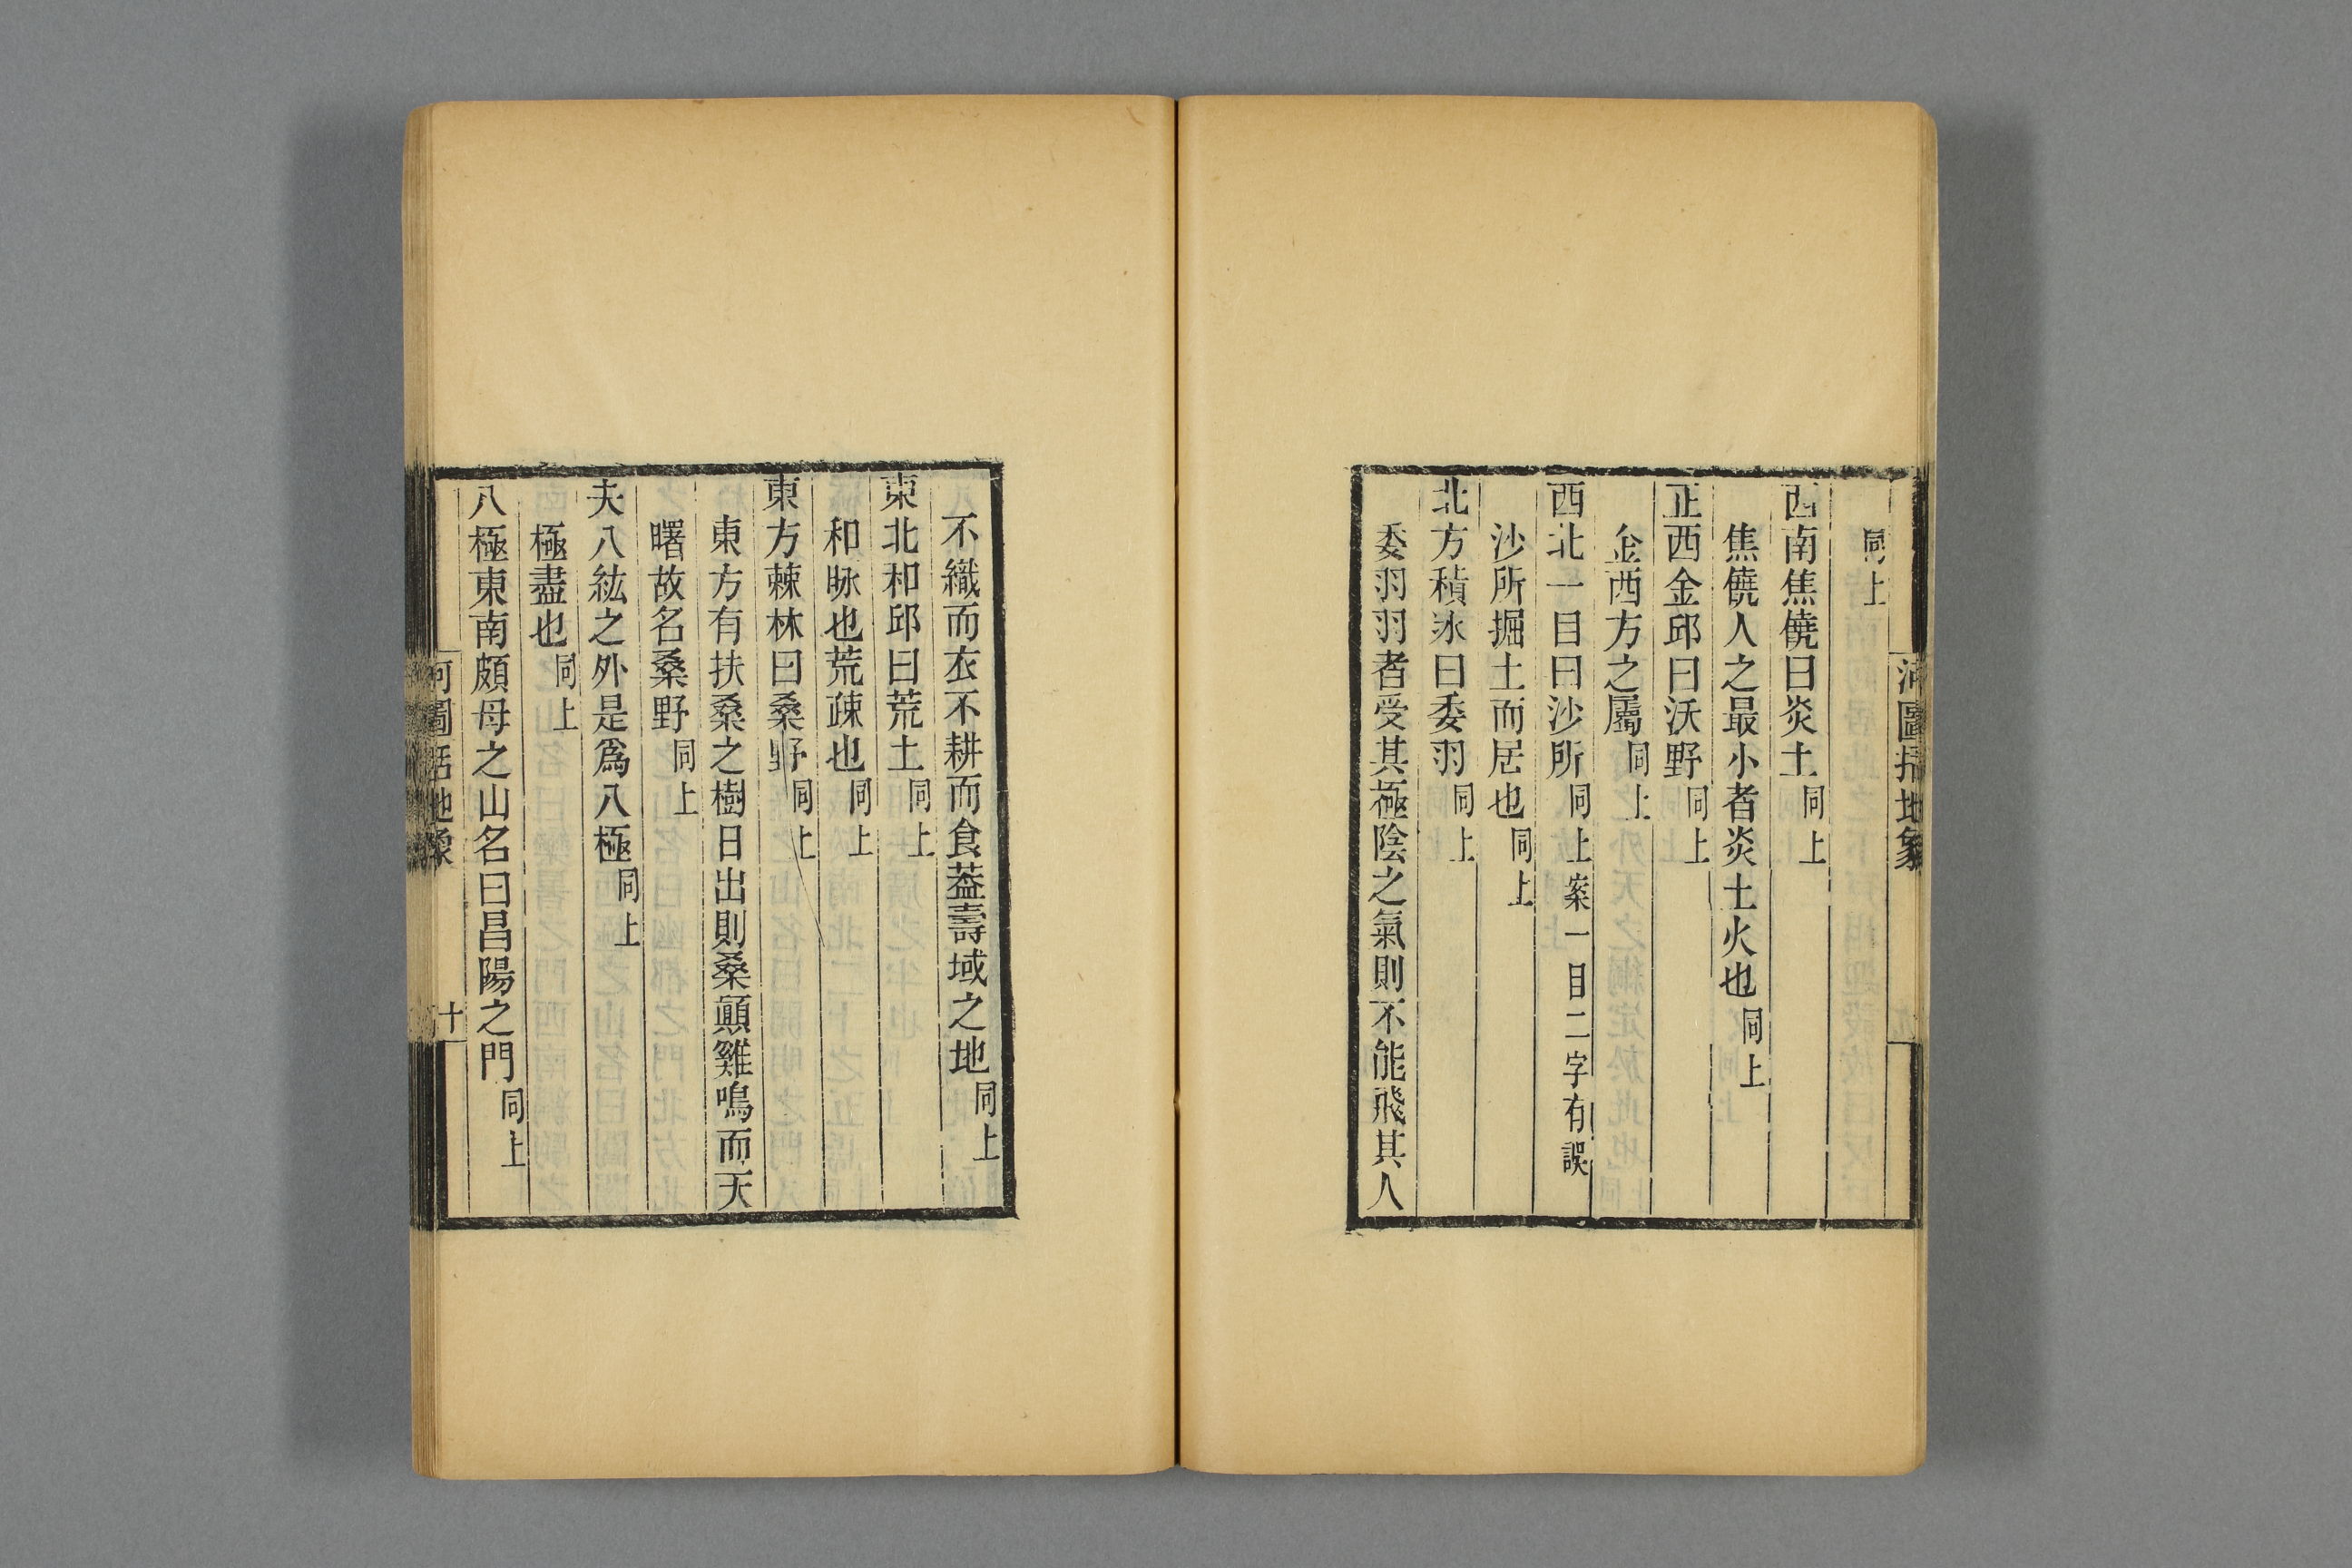 河圖括地象
同上
西南焦僥曰炎土同上
焦僥人之最小者炎土火也同上
正西金邱曰沃野同上
金西方之屬同上
西北一目曰沙所同上案一目二字有誤
沙所掘土而居也同上
北方積氷曰委羽同上
委羽羽者受其極陰之氣則不能飛其人
不織而衣不耕而食葢壽域之地同上
東北和邱曰荒土同上
和咏也荒疎也同上
東方棘林曰桑野同上
東方有扶桑之樹日出則桑顚雞鳴而天
曙故名桑野同上
夫八紘之外是爲八極同上
極盡也同上
八極東南頗母之山名曰昌陽之門同上
河圖括地象 十